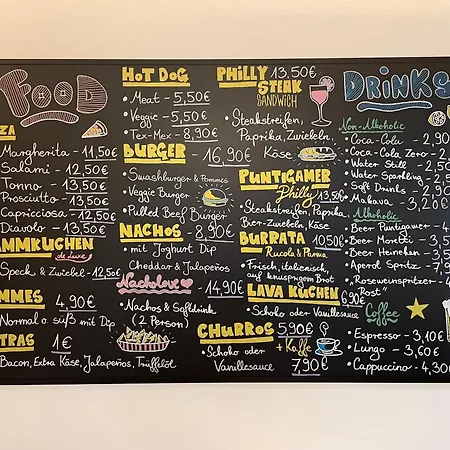 FOOD
ZA
Margherita - 11,50€
Salami - 12,50€
Tonno - 13,50€
Prosciutto - 13,50€
Capricciosa - 12,50€
Diavolo - 13,50€
AMMKUCHEN
de luxe
Speck & Zwiebel - 12,50€
MMES 4,90€
Normal o. süß mit Dip
TRAS 1€
Bacon, Extra Käse, Jalapeños, Trüffelöl
HOT DOG
• Meat - 5,50€
• Veggie - 5,50€
• Tex-Mex - 8,90€
BURGER 16,90€
• Smashburger & Pommes
• Veggie Burger
• Pulled Beef Burger
NACHOS 8,90€
• mit Joghurt Dip
Cheddar & Jalapeños
Nacholove 14,90€
• Nachos & Softdrink
(2 Person)
CHURROS 5,90€
• Schoko oder + Kaffe
Vanillesauce 7,90€
PHILLY 13,50€
STEAK
SANDWICH
• Steakstreifen,
Paprika, Zwiebeln,
Käse
PUNTIGAMER
Philly 13,50€
• Steakstreifen, Paprika,
Bier-Zwiebeln, Käse
BURRATA 10,50€
Rucola & Parma
• Frisch, italienisch,
auf knusprigem
Brot
LAVA KUCHEN 6,90€
• Schoko oder Vanillesauce
DRINKS
Non-Alkoholic
• Coca-Cola - 2,90
• Coca-Cola Zero - 2
• Water Still - 2,
• Water Sparkling
• Soft Drinks - 2
• Makava 3,20€
Alkoholic
• Beer Puntigamer - 4
• Beer Moretti - 3,5
• Beer Heineken - 3,
• Aperol Spritz - 7,
• Roseweinspritzer - 4
"Rosi"
Coffee
• Espresso - 3,10€
• Lungo - 3,60€
• Cappuccino - 4,30€